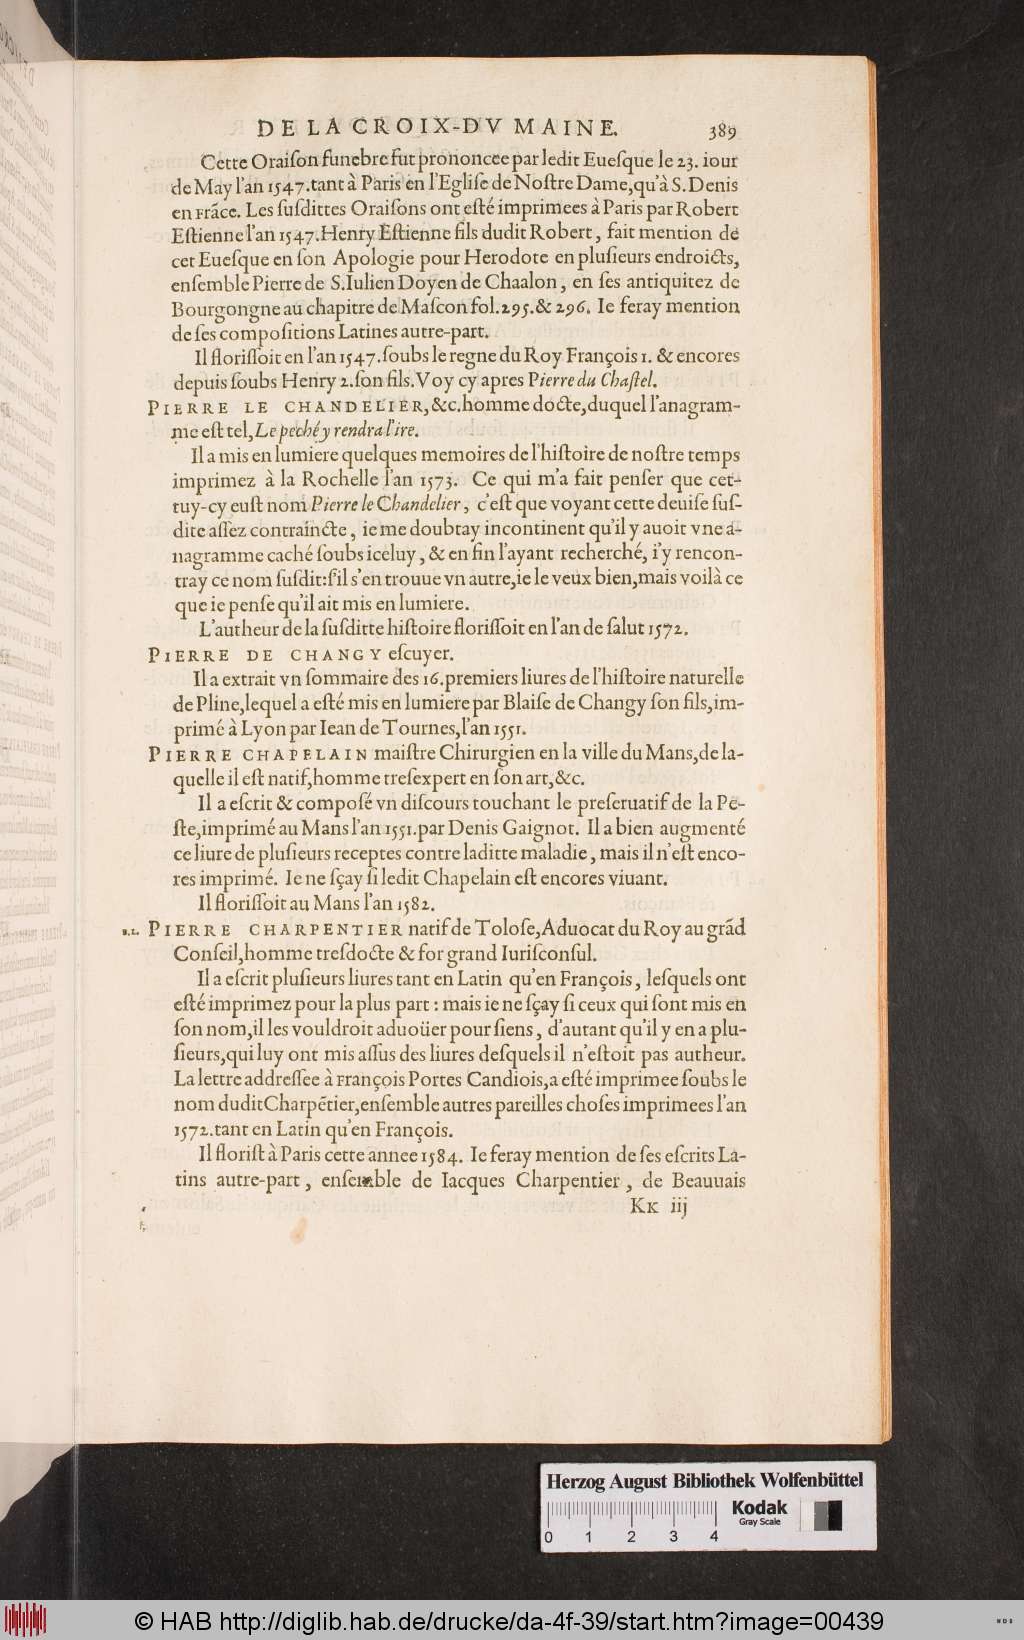 DE LA CROIX-DV MAINE. 389
Cette Oraiſon funebre fut prononcee par ledit Eueſque le 23. iour
de May l'an 1547. tant à Paris en l'Egliſe de Noſtre Dame, qu'à S. Denis
en Frãce. Les ſuſdittes Oraiſons ont eſté imprimees à Paris par Robert
Eſtienne l'an 1547. Henry Eſtienne fils dudit Robert, fait mention de
cet Eueſque en ſon Apologie pour Herodote en pluſieurs endroicts,
enſemble Pierre de S. Iulien Doyen de Chaalon, en ſes antiquitez de
Bourgongne au chapitre de Maſcon fol. 295. & 296. Ie feray mention
de ſes compoſitions Latines autre-part.
Il floriſſoit en l'an 1547. ſoubs le regne du Roy François 1. & encores
depuis ſoubs Henry 2. ſon fils. Voy cy apres Pierre du Chaſtel.
PIERRE LE CHANDELIER, &c. homme docte, duquel l'anagram-
me eſt tel, Le peché y rendra l'ire.
Il a mis en lumiere quelques memoires de l'hiſtoire de noſtre temps
imprimez à la Rochelle l'an 1573. Ce qui m'a fait penſer que cet-
tuy-cy euſt nom Pierre le Chandelier, c'eſt que voyant cette deuiſe ſuſ-
dite aſſez contraincte, ie me doubtay incontinent qu'il y auoit vne a-
nagramme caché ſoubs iceluy, & en fin l'ayant recherché, i'y rencon-
tray ce nom ſuſdit: ſ'il s'en trouue vn autre, ie le veux bien, mais voilà ce
que ie penſe qu'il ait mis en lumiere.
L'autheur de la ſuſditte hiſtoire floriſſoit en l'an de ſalut 1572.
PIERRE DE CHANGY eſcuyer.
Il a extrait vn ſommaire des 16. premiers liures de l'hiſtoire naturelle
de Pline, lequel a eſté mis en lumiere par Blaiſe de Changy ſon fils, im-
primé à Lyon par Iean de Tournes, l'an 1551.
PIERRE CHAPELAIN maiſtre Chirurgien en la ville du Mans, de la-
quelle il eſt natif, homme treſexpert en ſon art, &c.
Il a eſcrit & compoſé vn diſcours touchant le preſeruatif de la Pe-
ſte, imprimé au Mans l'an 1551. par Denis Gaignot. Il a bien augmenté
ce liure de pluſieurs receptes contre laditte maladie, mais il n'eſt enco-
res imprimé. Ie ne ſçay ſi ledit Chapelain eſt encores viuant.
Il floriſſoit au Mans l'an 1582.
B.L. PIERRE CHARPENTIER natif de Toloſe, Aduocat du Roy au grãd
Conſeil, homme treſdocte & for grand Iuriſconſul.
Il a eſcrit pluſieurs liures tant en Latin qu'en François, leſquels ont
eſté imprimez pour la plus part: mais ie ne ſçay ſi ceux qui ſont mis en
ſon nom, il les vouldroit aduoüer pour ſiens, d'autant qu'il y en a plu-
ſieurs, qui luy ont mis aſſus des liures deſquels il n'eſtoit pas autheur.
La lettre addreſſee à François Portes Candiois, a eſté imprimee ſoubs le
nom dudit Charpẽtier, enſemble autres pareilles choſes imprimees l'an
1572. tant en Latin qu'en François.
Il floriſt à Paris cette annee 1584. Ie feray mention de ſes eſcrits La-
tins autre-part, enſemble de Iacques Charpentier, de Beauuais
KK iij
Herzog August Bibliothek Wolfenbüttel
0 1 2 3 4
Kodak
Gray Scale
© HAB http://diglib.hab.de/drucke/da-4f-39/start.htm?image=00439